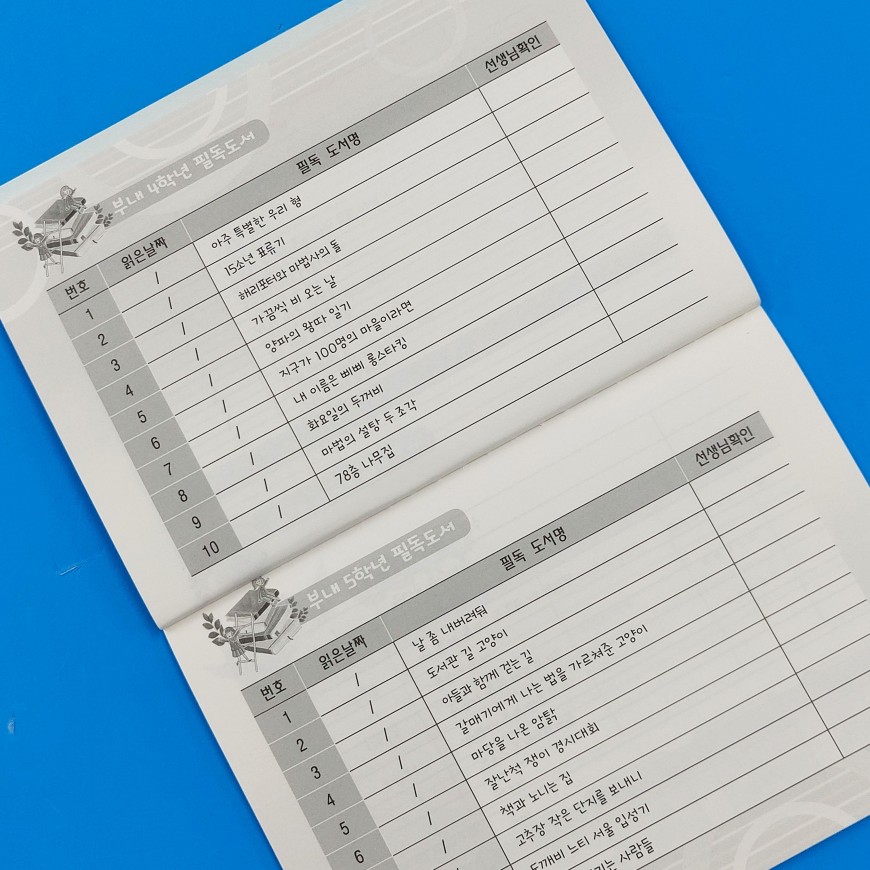 부내 4학년 필독도서
번호 읽은날짜 필독 도서명 선생님확인
1 / 아주 특별한 우리 형
2 / 15소년 표류기
3 / 해리포터와 마법사의 돌
4 / 가끔씩 비 오는 날
5 / 양파의 왕따 일기
6 / 지구가 100명의 마을이라면
7 / 내 이름은 삐삐 롱스타킹
8 / 화요일의 두꺼비
9 / 마법의 설탕 두 조각
10 / 78층 나무집
부내 5학년 필독도서
번호 읽은날짜 필독 도서명 선생님확인
1 / 날 좀 내버려둬
2 / 도서관 길 고양이
3 / 아들과 함께 걷는 길
4 / 갈매기에게 나는 법을 가르쳐준 고양이
5 / 마당을 나온 암탉
6 / 잘난척 쟁이 경시대회
/ 책과 노니는 집
고추장 작은 단지를 보내니
도깨비 느티 서울 입성기
사람들